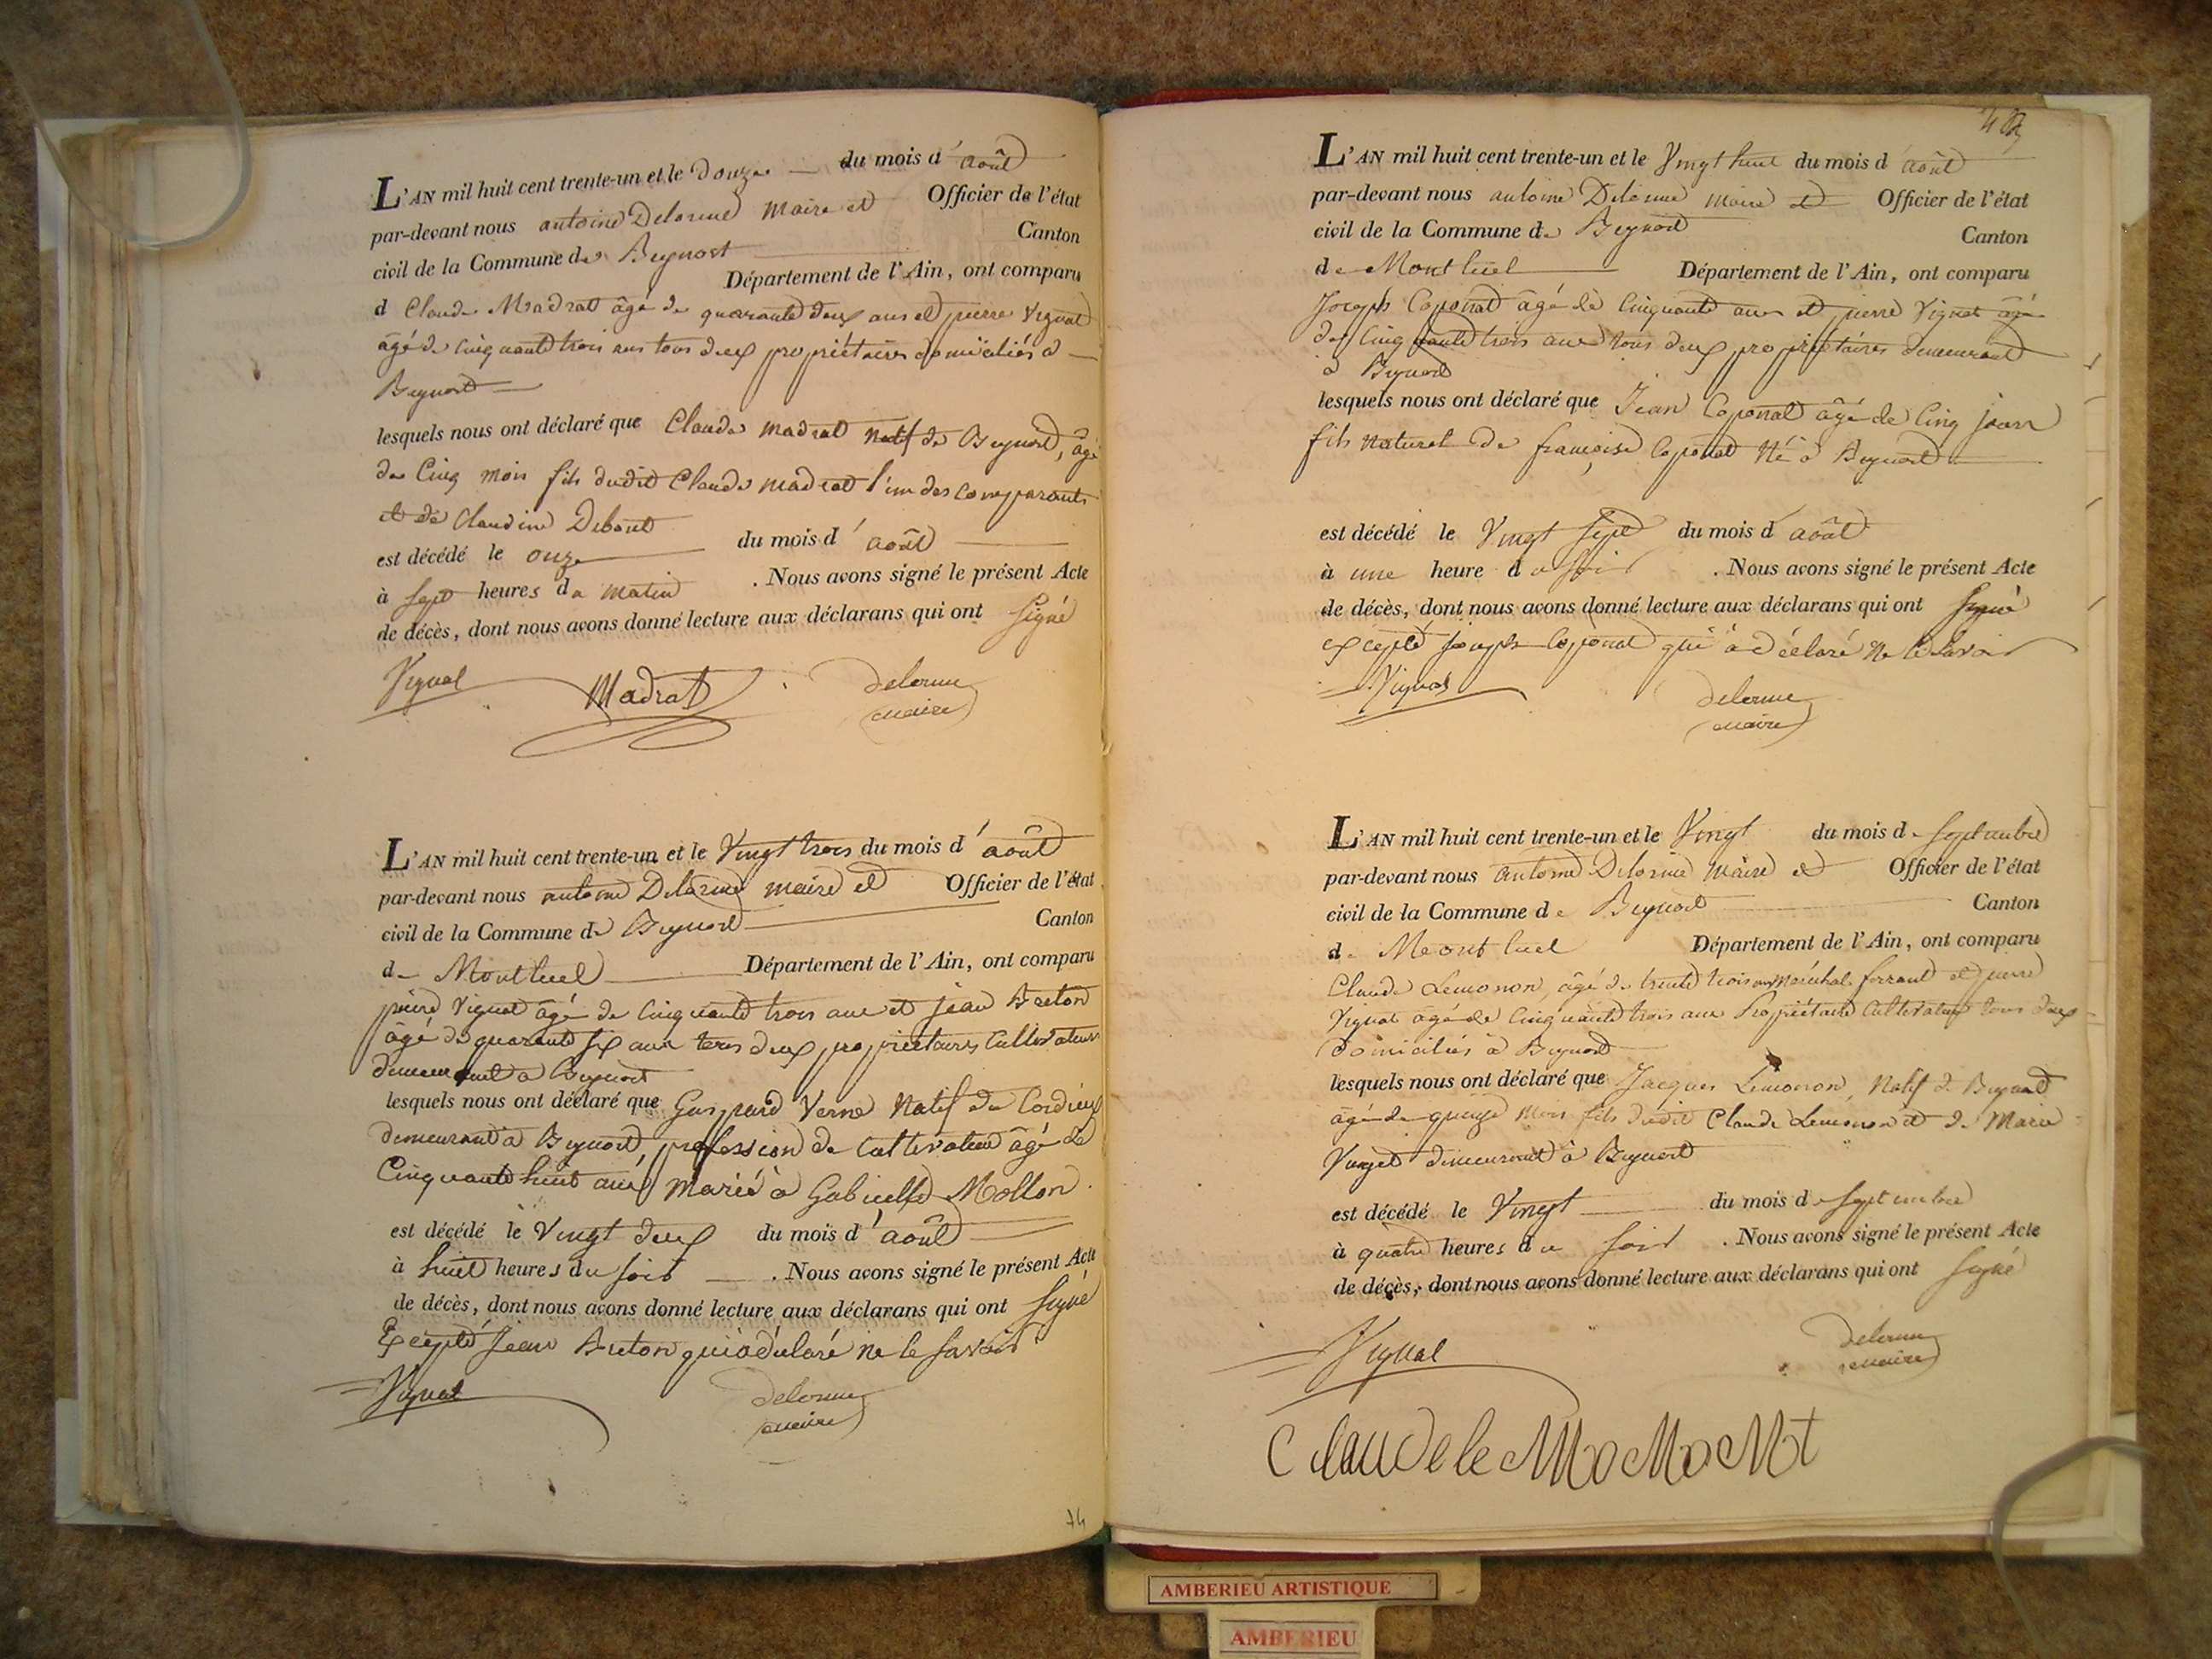 L'AN mil huit cent trente-un et le Douze du mois d'août
par-devant nous antoine Delorme maire et Officier de l'état
civil de la Commune de Beynost Canton
Département de l'Ain, ont comparu
d Claude Madrat âgé de quarante deux ans et pierre Vignat
âgé de cinquante trois ans tous deux propriétaires domiciliés à
Beynost
lesquels nous ont déclaré que Claude madrat natif de Beynost, âgé
de Cinq mois fils dudit Claude madrat l'un des comparants
et de Claudine Debout
est décédé le onze du mois d'août
à sept heures du matin . Nous avons signé le présent Acte
de décès, dont nous avons donné lecture aux déclarans qui ont signé
Vignat Madrat delorme
maire
L'AN mil huit cent trente-un et le Vingt trois du mois d'août
par-devant nous antoine Delorme maire et Officier de l'état
civil de la Commune de Beynost Canton
de Montluel Département de l'Ain, ont comparu
pierre Vignat âgé de cinquante trois ans et jean Breton
âgé de quarante six ans tous deux propriétaires Cultivateurs
demeurant à Beynost
lesquels nous ont déclaré que Gaspard Verne natif de Cordieux
demeurant à Beynost, profession de Cultivateur âgé de
Cinquante huit ans, marié à Gabrielle Mollon
est décédé le Vingt deux du mois d'août
à huit heures du soir . Nous avons signé le présent Acte
de décès, dont nous avons donné lecture aux déclarans qui ont signé
Excepté jean Breton qui a déclaré ne le savoir
Vignat delorme
maire
74
L'AN mil huit cent trente-un et le Vingt huit du mois d août
par-devant nous antoine Delorme maire et Officier de l'état
civil de la Commune de Beynost Canton
de Montluel Département de l'Ain, ont comparu
Joseph Coponat âgé de Cinquante ans et pierre Vignat âgé
de Cinquante trois ans tous deux propriétaires demeurant
à Beynost
lesquels nous ont déclaré que Jean Coponat âgé de Cinq jours
fils naturel de françoise Coponat né à Beynost
est décédé le Vingt sept du mois d août
à une heure du soir . Nous avons signé le présent Acte
de décès, dont nous avons donné lecture aux déclarans qui ont signé
excepté joseph Coponat qui a déclaré ne le savoir
Vignat delorme
maire
L'AN mil huit cent trente-un et le Vingt du mois de septembre
par-devant nous antoine Delorme maire et Officier de l'état
civil de la Commune de Beynost Canton
de Montluel Département de l'Ain, ont comparu
Claude Lemonon, âgé de trente trois ans maréchal ferrant et pierre
Vignat âgé de Cinquante trois ans Propriétaire Cultivateur tous deux
domiciliés à Beynost
lesquels nous ont déclaré que Jacques Lemonon, natif de Beynost
âgé de quinze mois fils dudit Claude Lemonon et de Marie
demeurant à Beynost
est décédé le Vingt du mois de septembre
à quatre heures du soir . Nous avons signé le présent Acte
de décès, dont nous avons donné lecture aux déclarans qui ont signé
Vignat delorme
maire
Claude le MoMoMt
AMBERIEU ARTISTIQUE
AMBERIEU